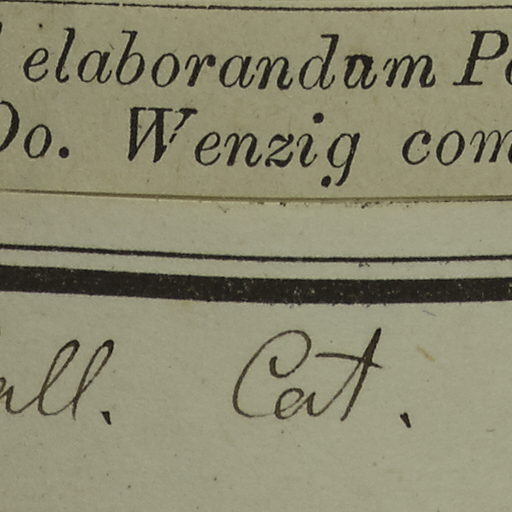 elaborandum Po
Do. Wenzig com
all. Cat.